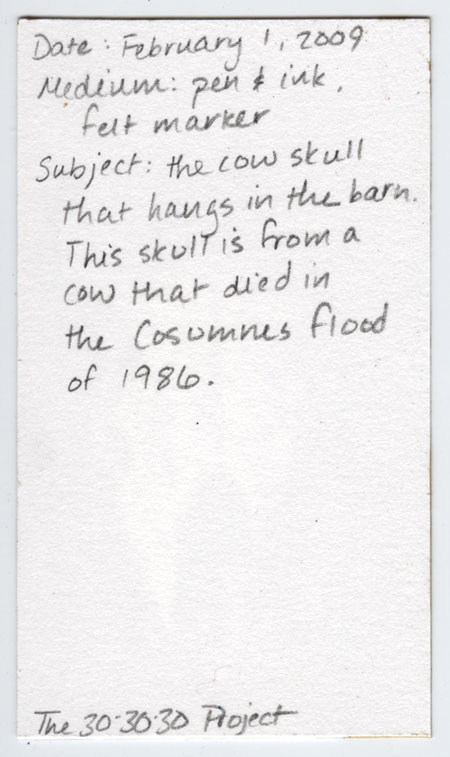 Date: February 1, 2009
Medium: pen & ink,
felt marker
Subject: the cow skull
that hangs in the barn.
This skull is from a
cow that died in
the Cosumnes flood
of 1986.
The 30-30-30 Project